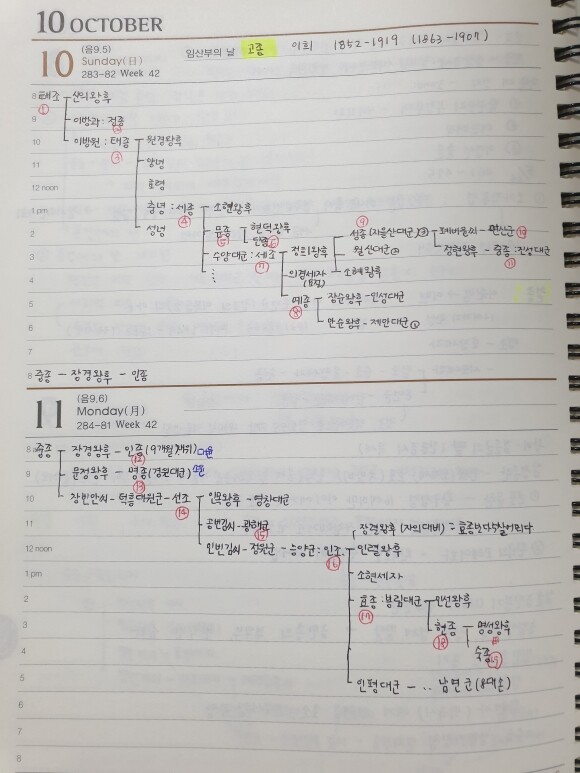 10 OCTOBER
10 (음9.5) 임산부의 날 고종 이희 1852-1919 (1863-1907)
Sunday(日)
283-82 Week 42
8 태조 - 신의왕후
①
9 이방과 : 정종
②
10 이방원 : 태종 - 원경왕후
③
11 양녕
12 noon 효령
1 pm 충녕 : 세종 - 소헌왕후
④
성녕
2 문종 - 현덕왕후
⑤
단종 ⑥
⑨
성종 (자을산대군)
월산대군
폐비윤씨 - 연산군 ⑩
정현왕후 - 중종 : 진성대군
⑪
3 수양대군 : 세조 - 정희왕후
⑦
4 ⋮ 의경세자 - 소혜왕후
(요절)
예종 - 장순왕후 - 인성대군
⑧
5 안순왕후 - 제안대군
6
7
8 중종 - 장경왕후 - 인종
11 (음9.6)
Monday(月)
284-81 Week 42
8 중종 - 장경왕후 - 인종 (9개월 재위) 대윤
⑫
9 문정왕후 - 명종 (경원대군) 소윤
⑬
10 창빈안씨 - 덕흥대원군 - 선조 - 인목왕후 - 영창대군
⑭
11 공빈김씨 - 광해군
⑮
장렬왕후 (자의대비) = 효종보다 5살 어리다
12 noon 인빈김씨 - 정원군 - 능양군 : 인조 - 인렬왕후
⑯
1 pm 소현세자
2 효종 : 봉림대군 - 인선왕후
⑰
3 현종 - 명성왕후
⑱
4 숙종 ⑲
5 인평대군 - ‥ 남연군 (8대손)
6
7
8